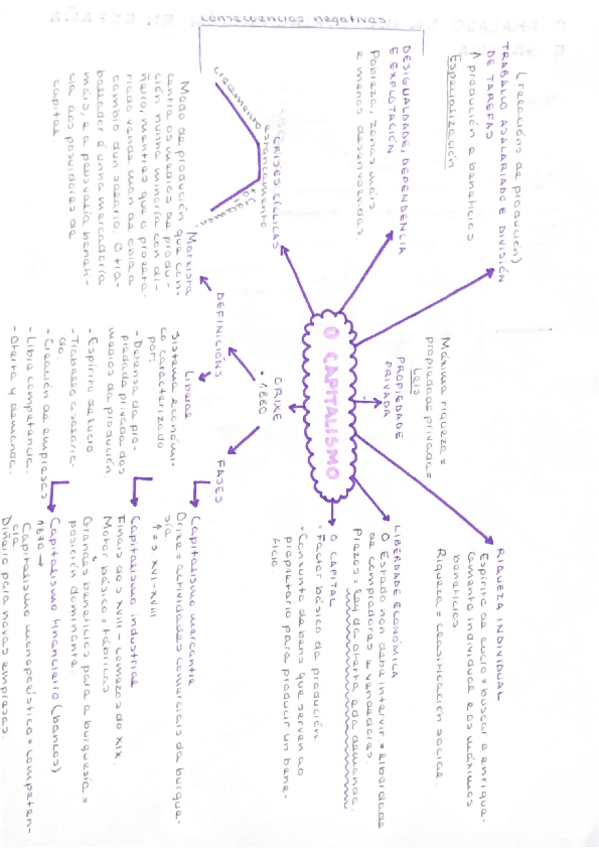 consecuencias negativas
(relacións de produción)
TRABALLO ASALARIADO E DIVISIÓN
DE TAREFAS
↑ produción e beneficios
Especialización
DESIGUALDADE, DEPENDENCIA
E EXPLOTACIÓN
Pobreza, zonas máis
e menos desenvoltas
CRISES CÍCLICAS
crecemento
estancamento
O CAPITALISMO
PROPIEDADE
PRIVADA
Leis
Máxima riqueza =
propiedade privada =
RIQUEZA INDIVIDUAL
Espírito de lucro = buscar o enrique-
cemento individual e os máximos
beneficios
Riqueza = clasificación social.
LIBERDADE ECONÓMICA
O Estado non debe intervir = liberdade
de compradores e vendedores.
Prezos = Lay da oferta e da demanda.
O CAPITAL
• Factor básico da produción.
• Conxunto de bens que serven ao
propietario para producir un bene-
ficio.
ORIXE
• 1880
DEFINICIÓNS
Marxista
Modo de produción que con-
centra os medios de produ-
ción nunha minoría con di-
ñeiro, mentres que o proleta-
riado vende man de obra a
cambio dun salario. O tra-
ballador é unha mercadoría
máis, e a plusvalía benefi-
cia aos posuidores de
capital
Liberal
Sistema económi-
co caracterizado
por:
- Defensa da pro-
piedade privada dos
medios da produción.
- Espírito de lucro
- Traballo asalaria-
do.
- Creación de empresas
- Libre competencia.
- Oferta y demanda.
FASES
Capitalismo mercantil
Orixe = actividades comerciais da burgue-
sía.
↑ = s XVI - XVIII
Capitalismo industrial
Finais do s XVIII - comezos do XIX.
Motor básico = fábricas
Grandes beneficios para a burguesía =
posición dominante.
Capitalismo financieiro (bancos)
1870 →
Capitalismo monopolístico = competen-
cia
Diñeiro para novas empresas.